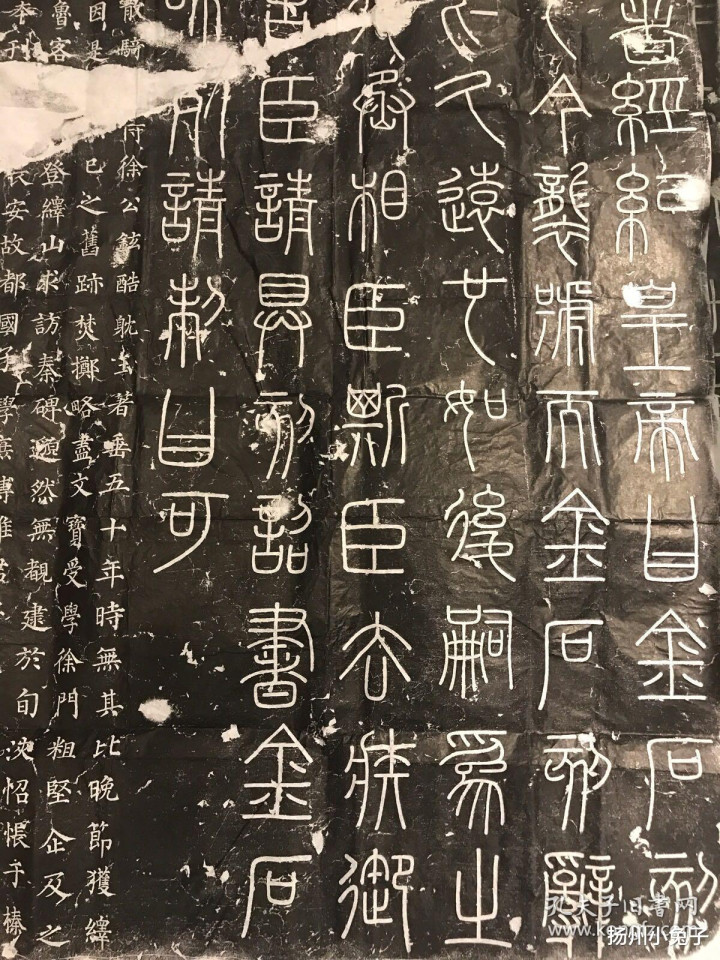 著經紀皇帝曰金石刻
今襲號而金石刻辭
於久遠也如後嗣爲之
丞相臣斯臣去疾御
言臣請具刻詔書金石
死請制曰可
散騎侍徐公鉉酷躭玉著垂五十年時無其比晚節獲繹
因是已之舊跡焚擲略盡文寶受學徐門粗堅企及之
魯客登繹山求訪秦碑邈然無覩逮於旬浹怊悵于榛
本于長安故都國子學庶博雅君
孔夫子旧书网
扬州小兔子